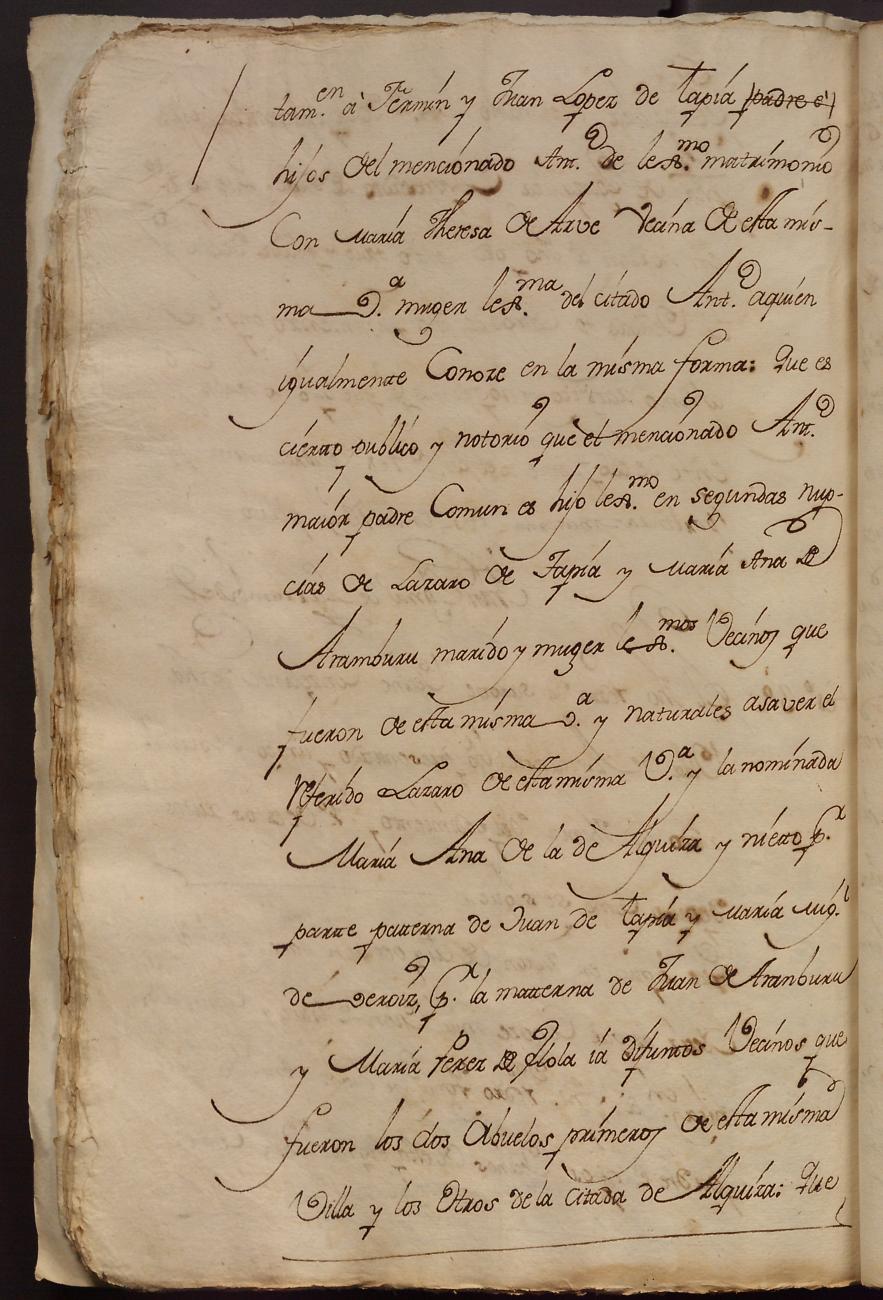 tam.en à Fermin y Juan Lopez de Tapia padre è
hijos del mencionado Ant.o de lex.mo matrimonio
Con Maria Theresa de Arve Vecina de esta mis-
ma V.a muger lex.ma del citado Ant.o aquien
igualmente Conoze en la misma forma: Que es
cierto publico y notorio que el mencionado Ant.o
maior padre Comun es hijo lex.mo en segundas nup-
cias de Lazaro de Tapia y Maria Ana de
Aramburu marido y muger lex.mos Vecinos que
fueron de esta misma V.a y naturales asaver el
referido Lazaro de esta misma V.a y la nominada
Maria Ana de la de Alquiza y nieto p.r
parte paterna de Juan de Tapia y Maria Mig.l
de p.r la materna de Juan de Aranburu
y Maria Perez de ia difuntos Vecinos que
fueron los dos Abuelos primeros de esta misma
Villa y los Otros de la Citada de Alquiza: Que